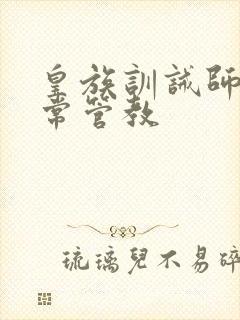 皇族訓誡師
常管教
琉璃兒不易碎